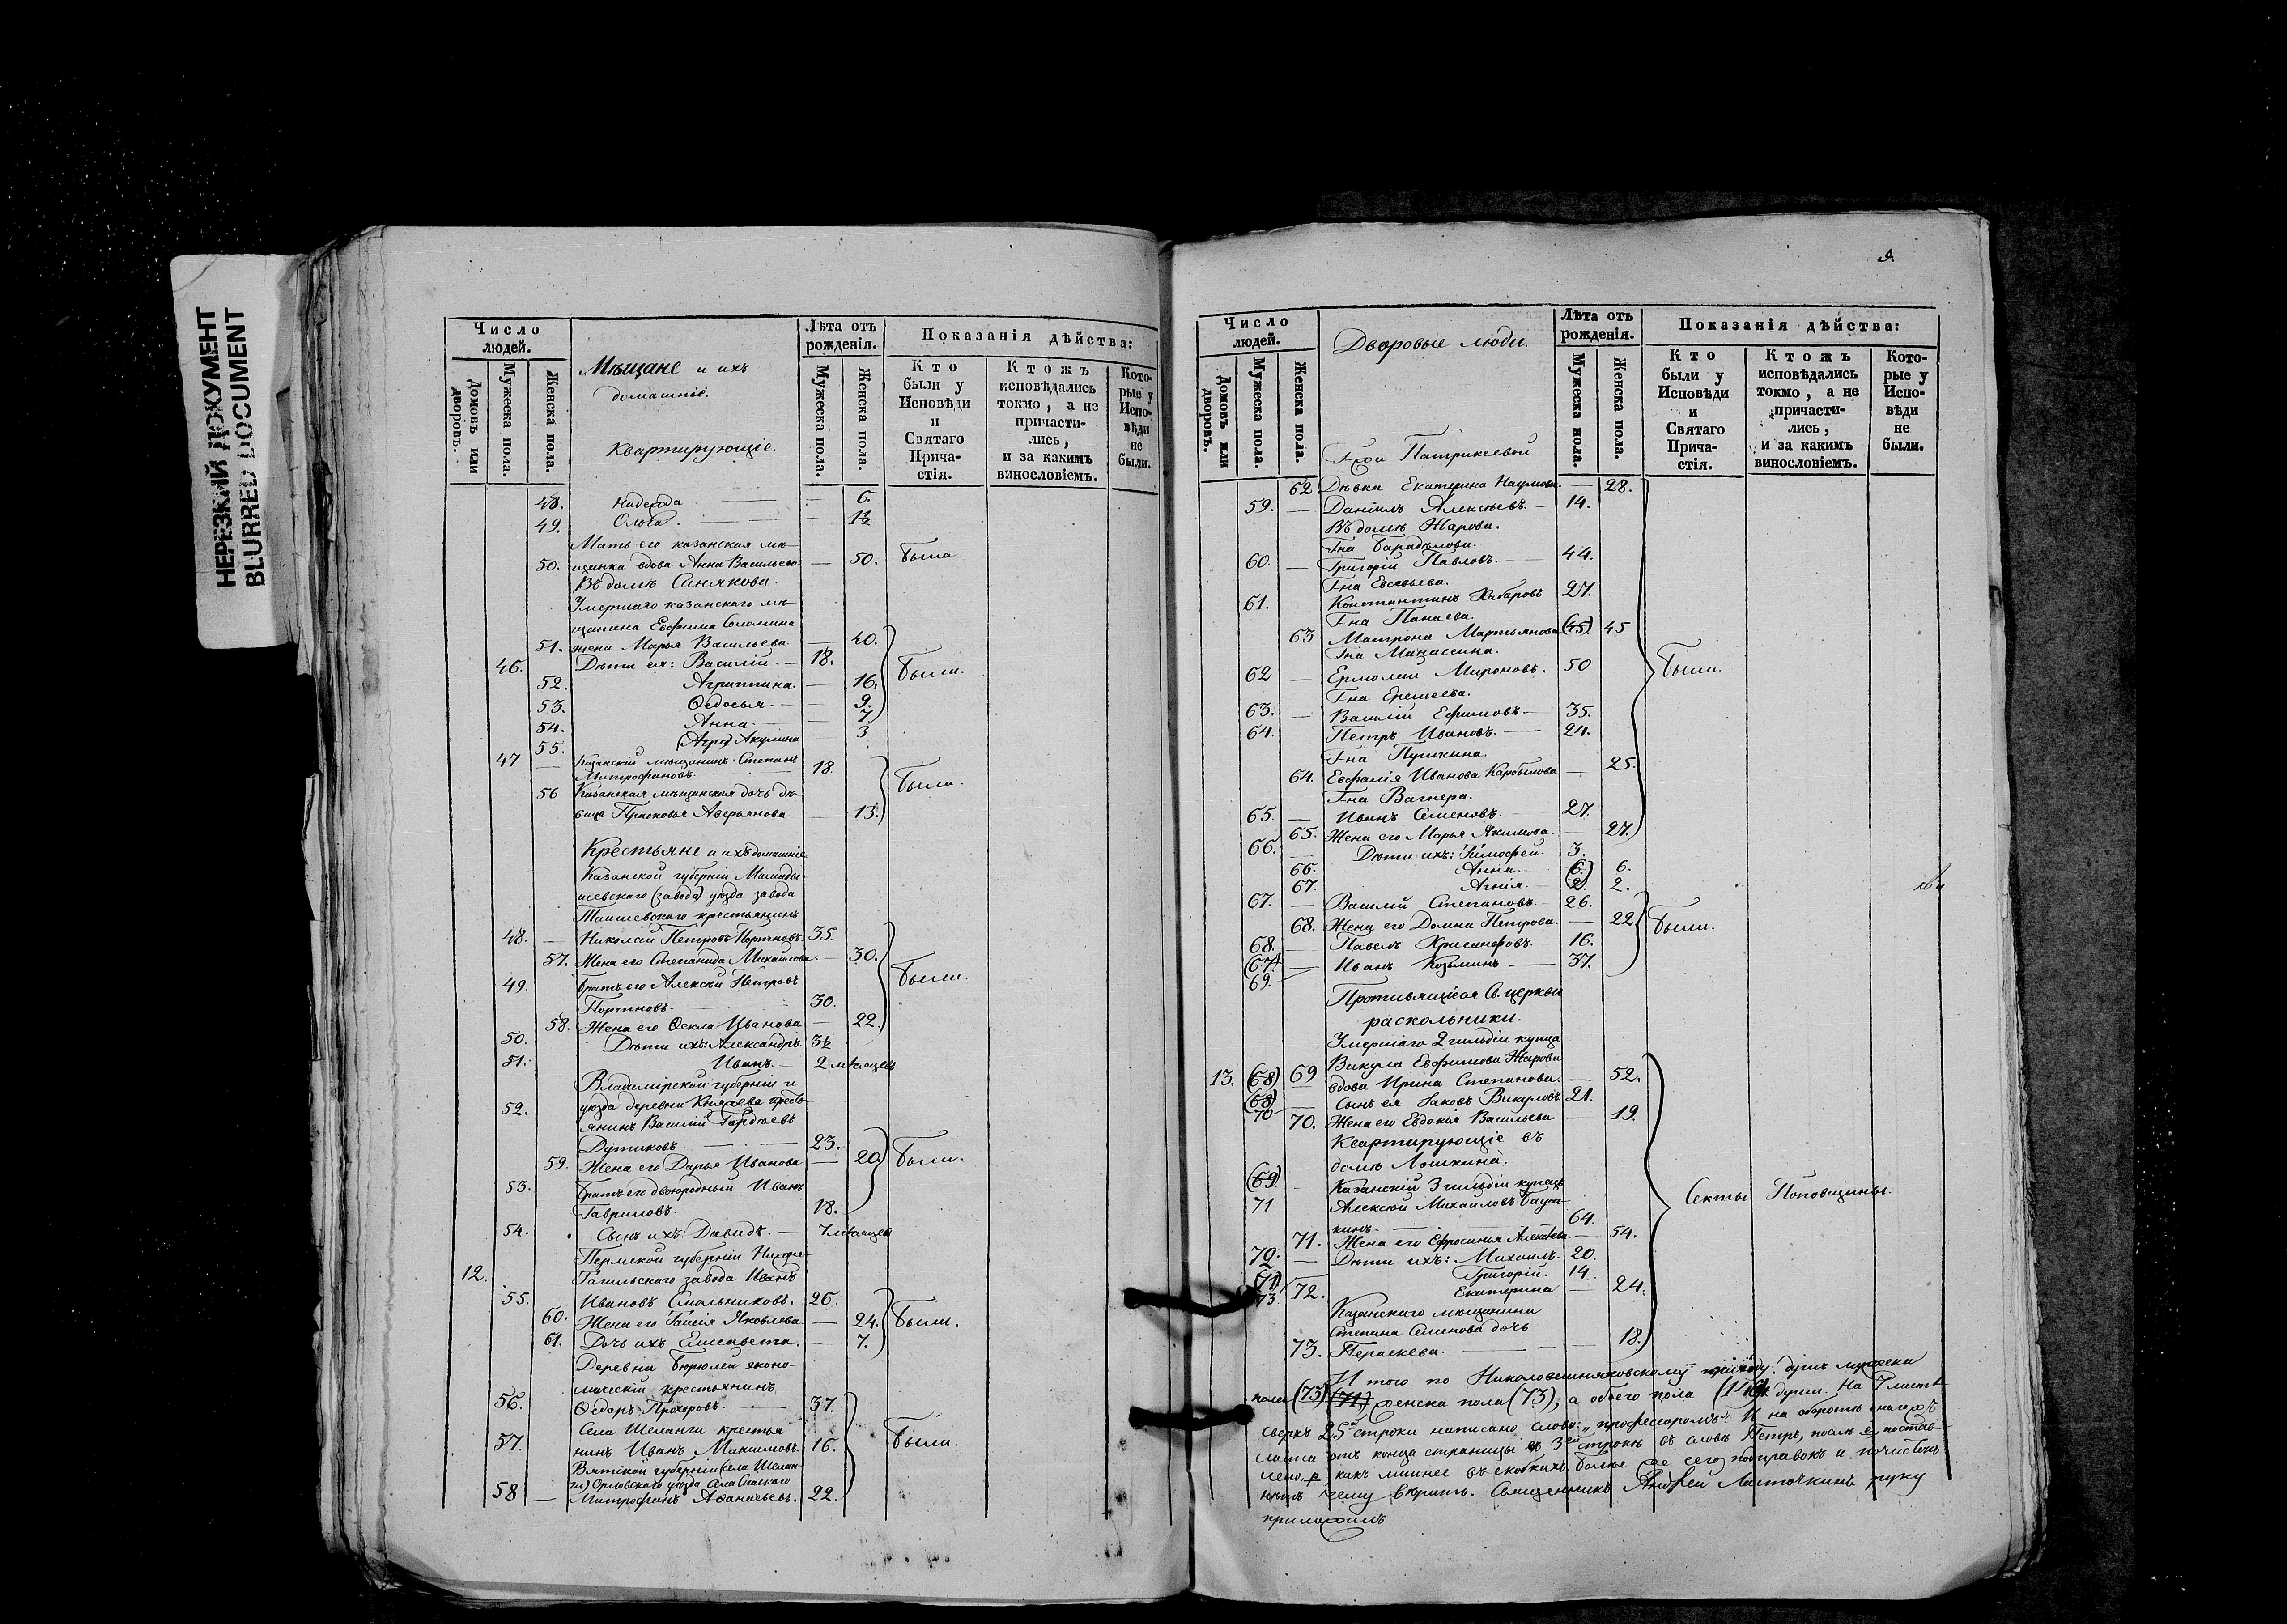 НЕРЕЗКИЙ ДОКУМЕНТ
BLURRED DOCUMENT
Число людей.
Домовъ или дворовъ.
Мужеска пола.
Женска пола.
Мѣщане и ихъ
домашніе.
Квартирующіе.
Лѣта отъ рожденія.
Мужеска пола.
Женска пола.
Показанія дѣйства:
Кто были у Исповѣди и Святаго Прича-стія.
Ктожъ исповѣдались токмо, а не причасти-лись, и за какимъ винословіемъ.
Кото-рые у Испо-вѣди не были.
48. Надежда — 6.
49. Ольга. — 1½
Мать его казанская мѣ-
50. щанка вдова Анна Васильева — 50. Была
Въ домѣ Синякова.
Умершаго казанскаго мѣ-
щанина Евфима Соломина
51. жена Марья Васильева — 40.
46. Дѣти ея: Василій. — 18.
52. Агриппина. — 16. Были.
53. Ѳедосья. — 9.
54. Анна. — 7
55. (Агр) Акулина — 3
47 — Казанскій мѣщанинъ Степанъ
Митрофановъ. 18.
56 Казанская мѣщанская дочь дѣ- Были.
вица Прасковья Аверьянова. — 13.
Крестьяне и ихъ домашніе
Казанской губерніи Мамады-
шевскаго (завода) уѣзда завода
Таишевскаго крестьянинъ
48. — Николай Петровъ Портновъ. 35.
57. Жена его Степанида Михайлова. — 30.
49. Братъ его Алексѣй Петровъ Были.
Портновъ. — 30.
58. Жена его Ѳекла Иванова — 22.
50. Дѣти ихъ: Александръ. 3½
51. Иванъ. — 2 мѣсяцевъ
Владимірской губерніи и
52. уѣзда деревни Князева кресть-
янинъ Василій Гордѣевъ
Дутиковъ — 23.
59. Жена его Дарья Иванова — 20. Были.
53. Братъ его двоюродный Иванъ
Гавриловъ. 18.
54. Сынъ ихъ: Давидъ. — 7 мѣсяцевъ
Пермской губерніи Нижне-
12. Тагильскаго завода Иванъ
55. Ивановъ Смольниковъ. 26.
60. Жена его Таисія Яковлева. — 24. Были.
61. Дочь ихъ Елисавета. — 7.
Деревни Бюрюлей эконо-
мическій крестьянинъ
56. Ѳедоръ Прохоровъ. — 37.
Села Шеланги крестья
57. нинъ Иванъ Максимовъ. 16. Были.
Вятской губерніи (села Шелан-
ги) Орловскаго уѣзда села Спаскаго
58 — Митрофанъ Аѳанасьевъ. 22.
9.
Число людей.
Домовъ или дворовъ.
Мужеска пола.
Женска пола.
Дворовые люди.
Лѣта отъ рожденія.
Мужеска пола.
Женска пола.
Показанія дѣйства:
Кто были у Исповѣди и Святаго Прича-стія.
Ктожъ исповѣдались токмо, а не причасти-лись, и за какимъ винословіемъ.
Кото-рые у Испо-вѣди не были.
Г-жи Патрикеевой
62. Дѣвка Екатерина Наумова. — 28.
59. — Даніилъ Алексѣевъ. — 14.
Въ домѣ Жарова.
Г-на
60. — Григорій Павловъ. — 44.
Г-на Евсевьева.
61. Константинъ Хабаровъ 27.
Г-на Панаева.
63 Матрона Мартьянова (45) 45
Г-на
62 — Ермолай Мироновъ. 50 Были.
Г-на Еремеева.
63. — Василій Ефимовъ — 35.
64. Петръ Ивановъ. — 24.
Г-на Пушкина.
64. Евфалія Иванова — 25.
Г-на Вагнера.
65. — Иванъ Семеновъ. — 27.
65. Жена его Марья Акимова. — 27.
66. — Дѣти ихъ: Тимофей. 3.
66. Анна. — (6.) 6.
67. Агнія. — (2.) 2.
67. — Василій Степановъ. — 26.
68. Жена его Домна Петрова. — 22 Были.
68. — Павелъ Хрисанфовъ. — 16.
(67) — Иванъ Козьминъ — 37.
69.
Противящіеся Св. церкви
раскольники.
Умершаго 2 гильдіи купца
Викула Евфимова Жарова
13. (68) 69 вдова Ирина Степанова. — 52.
(68) — Сынъ ея Іаковъ Викуловъ. 21.
70 70. Жена его Евдокія Васильева — 19.
Квартирующіе въ
домѣ Лошкина.
(69) — Казанскій 3 гильдіи купецъ
71 Алексѣй Михайловъ Секты Поповщины.
кинъ. — 64.
71. Жена его Ефросинья Алексѣева. — 54.
72. — Дѣти ихъ: Михаилъ. 20.
(71) Григорій. 14
73. 72. Екатерина — 24.
Казанскаго мѣщанина
Степана Семенова дочь
73. Параскева. — 18.
И того по приходу: душъ мужеска
пола (73) (71,) женска пола (73), а обоего пола (146) душъ. На 7 листѣ
сверхъ 25й строки написано слово: „профессоромъ“. И на оборотѣ онаго
листа отъ конца страницы въ 3ей строкѣ въ словѣ Петръ, послѣ ѣ постав-
лено р какъ лишнее въ скобкахъ. Болѣе же сего поправокъ и почистокъ
нѣтъ чему вѣрить. Священникъ Андрей Ласточкинъ руку
приложилъ